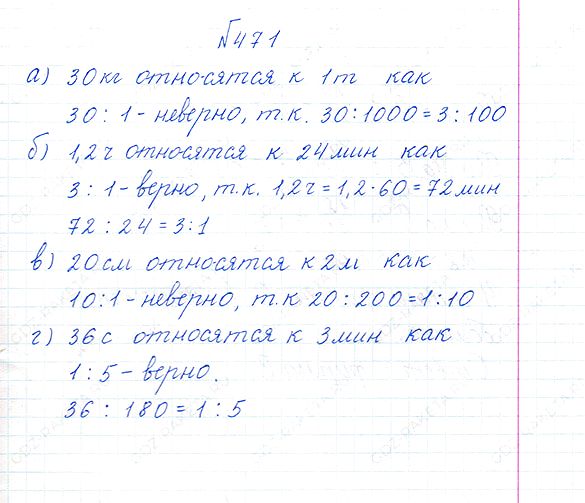 №471
а) 30кг относятся к 1т как
30 : 1 - неверно, т.к. 30:1000=3:100
б) 1,2ч относятся к 24мин как
3 : 1 - верно, т.к. 1,2ч=1,2·60=72мин
72 : 24=3:1
в) 20см относятся к 2м как
10:1 - неверно, т.к 20:200=1:10
г) 36с относятся к 3мин как
1:5 - верно.
36 : 180=1:5